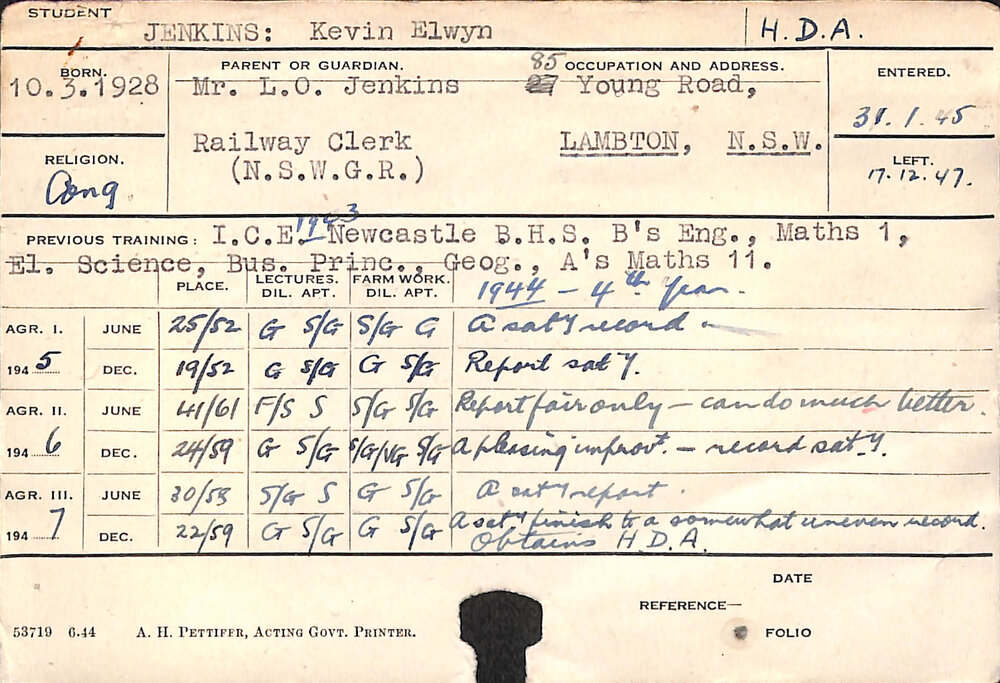 STUDENT
JENKINS: Kevin Elwyn H.D.A.
BORN. PARENT OR GUARDIAN. 85 OCCUPATION AND ADDRESS. ENTERED.
10.3.1928 Mr. L.O. Jenkins 27 Young Road,
31.1.45
Railway Clerk LAMBTON, N.S.W.
RELIGION. (N.S.W.G.R.) LEFT.
Cong 17.12.47.
1943
PREVIOUS TRAINING: I.C.E. Newcastle B.H.S. B's Eng., Maths 1,
El. Science, Bus. Princ., Geog., A's Maths 11.
PLACE. LECTURES. DIL. APT. FARM WORK. DIL. APT. 1944 - 4th Year.
AGR. I. JUNE 25/52 G S/G S/G G A sat'y record
1945 DEC. 19/52 G S/G G S/G Report sat'y.
AGR. II. JUNE 41/61 F/S S S/G S/G Report fair only - can do much better.
1946 DEC. 24/59 G S/G S/G/VG S/G A pleasing improvt. - record sat'y.
AGR. III. JUNE 30/58 S/G S G S/G A sat'y report.
1947 DEC. 22/59 G S/G G S/G A sat'y finish to a somewhat uneven record.
Obtains H.D.A.
DATE
REFERENCE—
53719 6.44 A. H. PETTIFER, ACTING GOVT. PRINTER. FOLIO